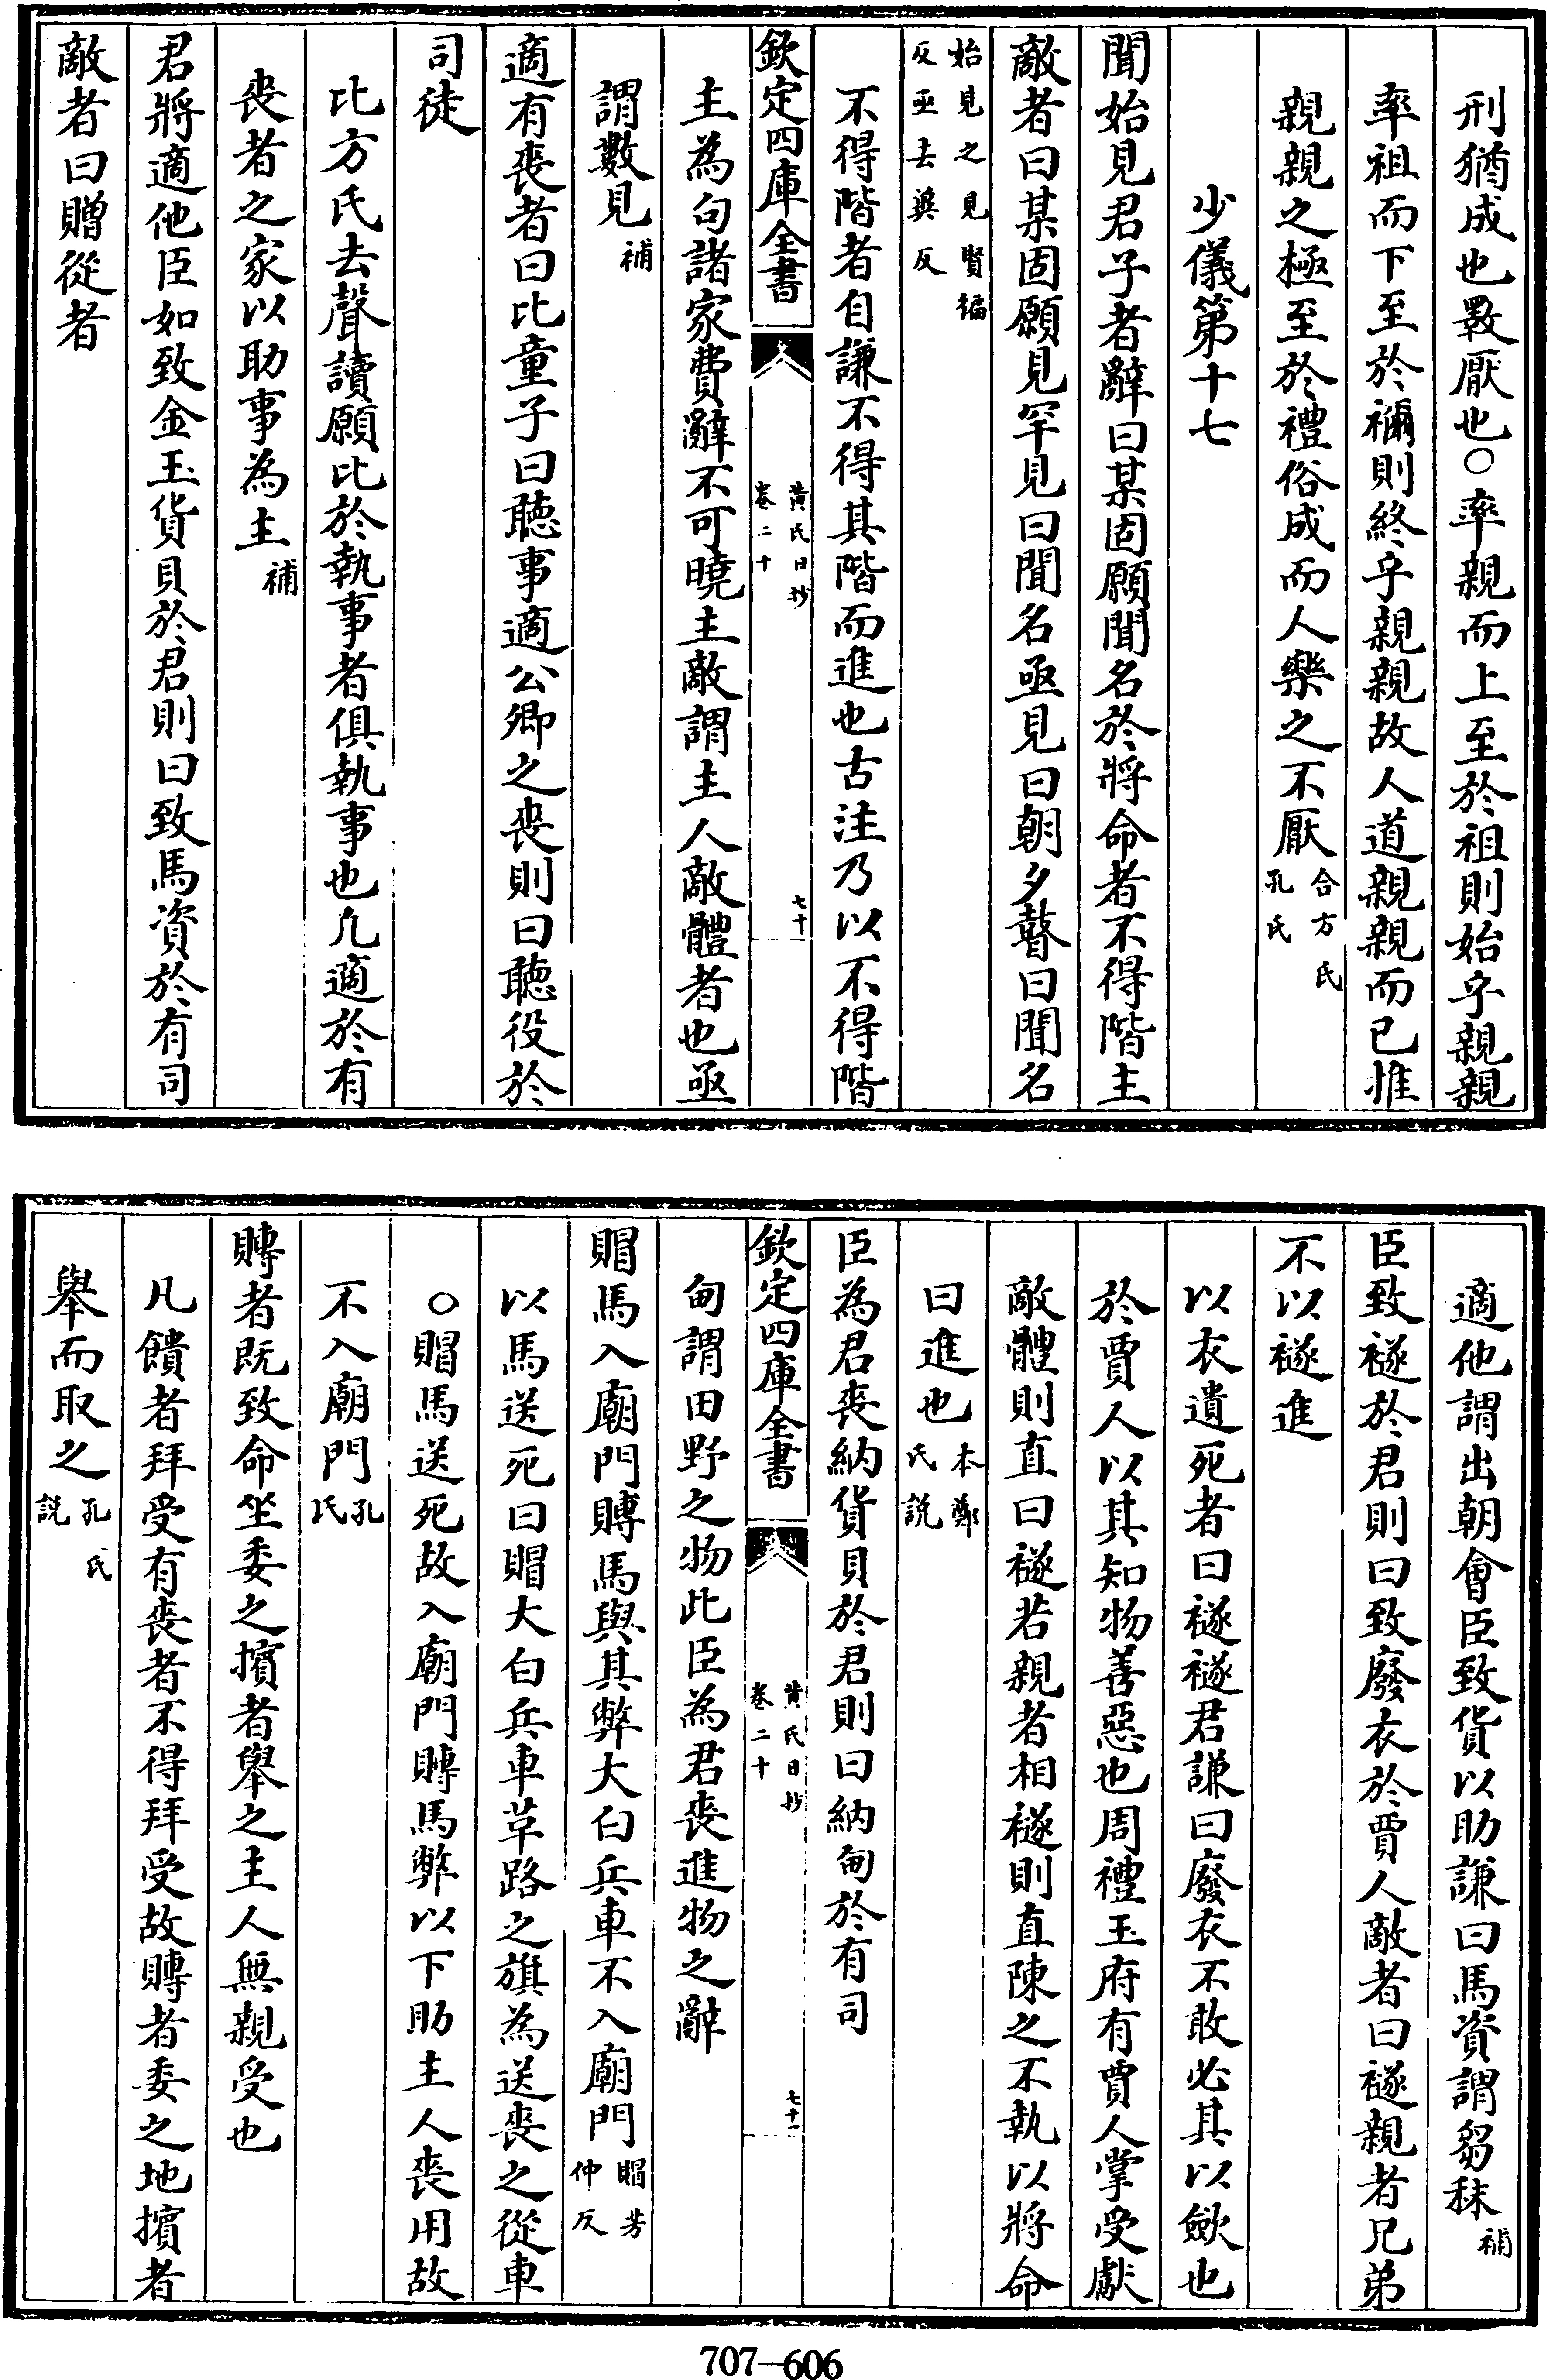 刑猶成也斁厭也○率親而上至於祖則始乎親親
率祖而下至於禰則終乎親親故人道親親而已惟
親親之極至於禮俗成而人樂之不厭合方氏孔氏
少儀第十七
聞始見君子者辭曰某固願聞名於將命者不得階主
敵者曰某固願見罕見曰聞名亟見曰朝夕瞽曰聞名
始見之見賢徧反亟去兾反
不得階者自謙不得其階而進也古注乃以不得階
欽定四庫全書
黄氏日抄
卷二十
七十
主為句諸家費辭不可曉主敵謂主人敵體者也亟
謂數見補
適有喪者曰比童子曰聽事適公卿之喪則曰聽役於
司徒
比方氏去聲讀願比於執事者俱執事也凡適於有
喪者之家以助事為主補
君將適他臣如致金玉貨貝於君則曰致馬資於有司
敵者曰贈從者
適他謂出朝會臣致貨以助謙曰馬資謂芻秣補
臣致襚於君則曰致廢衣於賈人敵者曰襚親者兄弟
不以襚進
以衣遺死者曰襚襚君謙曰廢衣不敢必其以歛也
於賈人以其知物善惡也周禮玉府有賈人掌受獻
敵體則直曰襚若親者相襚則直陳之不執以將命
曰進也本鄭氏説
臣為君喪納貨貝於君則曰納甸於有司
欽定四庫全書
黄氏日抄
卷二十
七十一
甸謂田野之物此臣為君喪進物之辭
賵馬入廟門賻馬與其幣大白兵車不入廟門賵芳仲反
以馬送死曰賵大白兵車革路之旗為送喪之從車
○賵馬送死故入廟門賻馬幣以下助主人喪用故
不入廟門孔氏
賻者既致命坐委之擯者舉之主人無親受也
凡饋者拜受有喪者不得拜受故賻者委之地擯者
舉而取之孔氏説
707—606